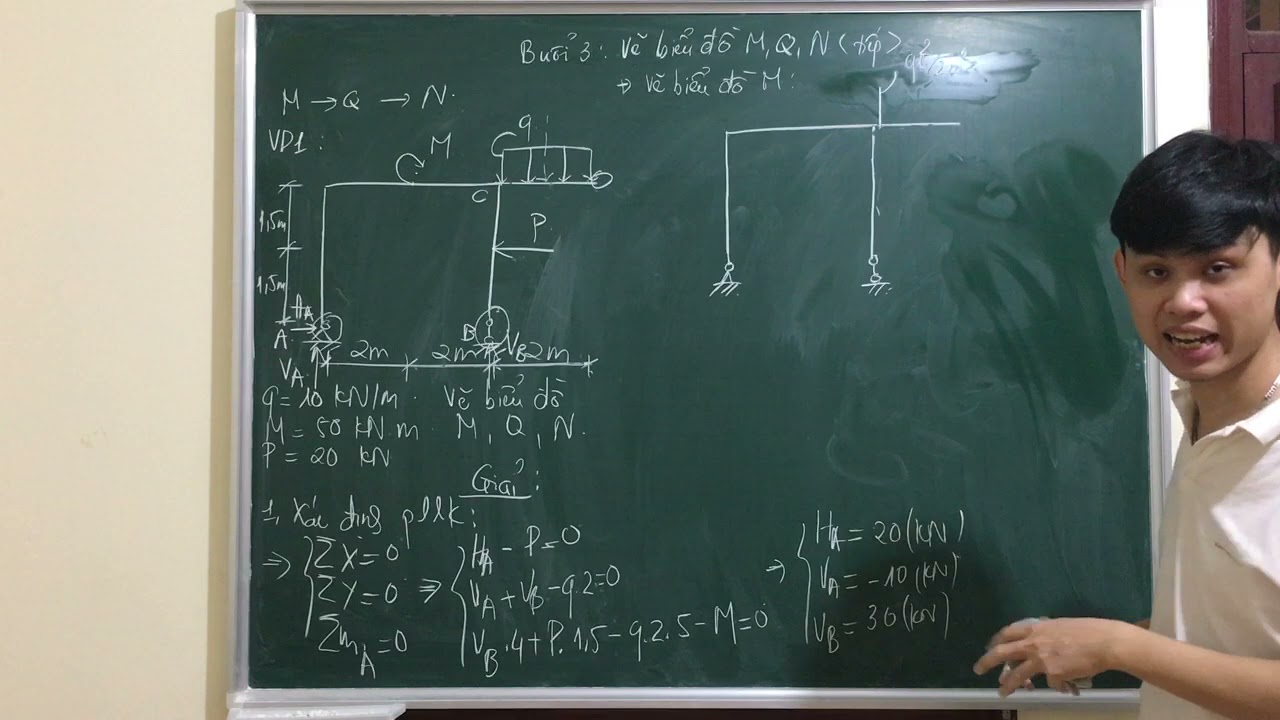 Buổi 3: Vẽ biểu đồ M, Q, N (tiếp)
→ Vẽ biểu đồ M:
M → Q → N.
VD1:
M
q
C
P
1,5m
1,5m
HA
A
B
VA
VB
2m 2m 2m
q = 10 kN/m. Vẽ biểu đồ
M = 50 kN.m M, Q, N.
P = 20 kN
Giải:
1, Xác định pllk:
⇒ { ΣX = 0
ΣY = 0
ΣmA = 0
⇒ { HA - P = 0
VA + VB - q.2 = 0
VB.4 + P.1,5 - q.2.5 - M = 0
⇒ { HA = 20 (kN)
VA = -10 (kN)
VB = 30 (kN)